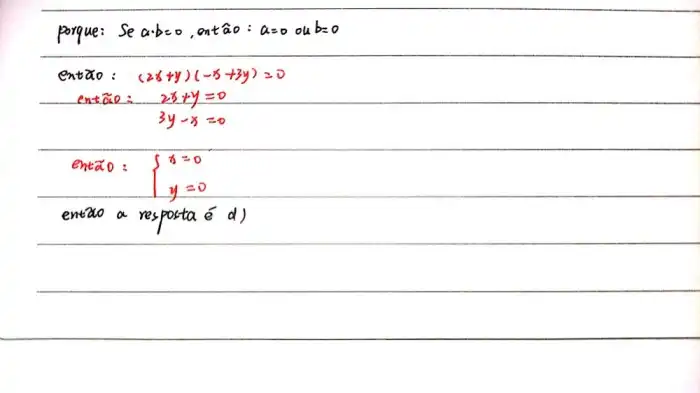 porque: Se a·b=0, então: a=0 ou b=0
então: (2x+y)(-x+3y)=0
então: 2x+y=0
3y-x=0
então: { x=0
y=0
então a resposta é d)